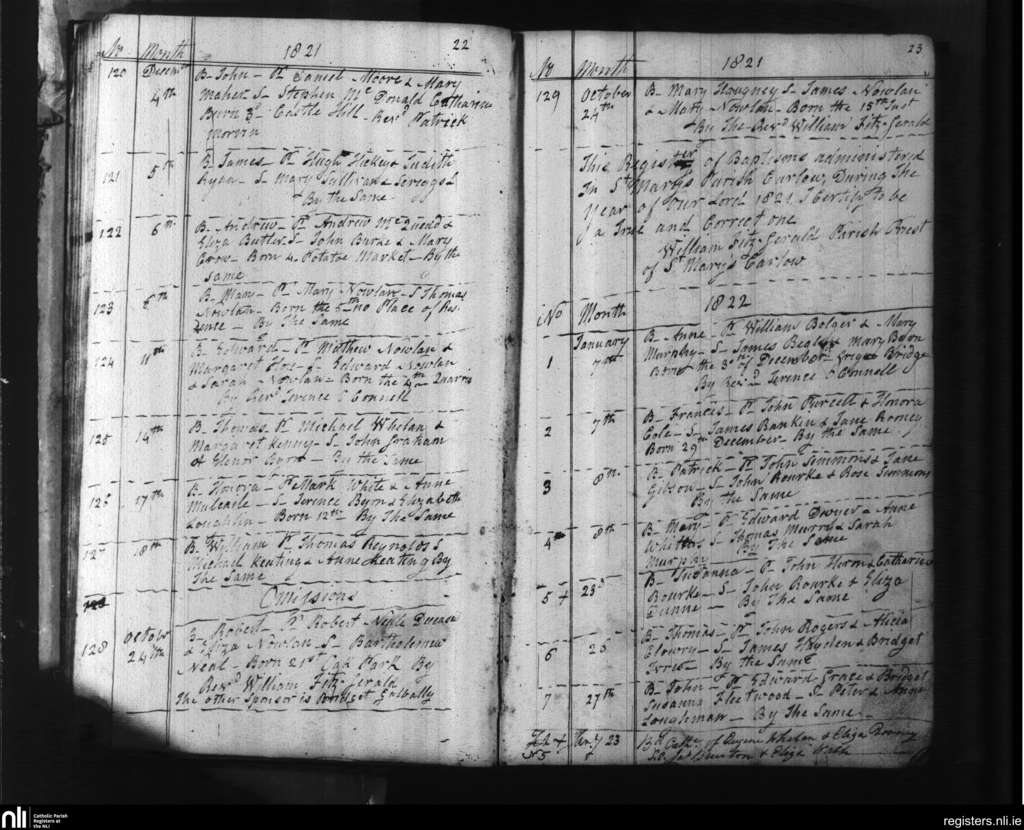 No Month 1821 22
120 Decemr 4th B- John - Pt Daniel Moore & Mary
Maher S- Stephen Mc Donald Catharine
Byrn 3d Castle Hill - Revd Patrick
121 5th B- James - Pt Hugh Hickey & Judith
Ryan - S- Mary Sullivan &
By the Same
122 6th B- Andrew - Pt Andrew Mc &
Eliza Butler S- John Burke & Mary
Crow - Born 4 Potatoe Market - By the
Same
123 6th B- Mary - Pt Mary Nowlan - S- Thomas
Nowlan - Born the 5th no Place of Res
idence - By The Same
124 11th B- Edward - Pt Mathew Nowlan &
Margaret - S- Edward Nowlan
& Sarah Nowlan - Born the 4th
By Revd Terence O Connell
125 14th B- Thomas Pt Michael Whelan &
Margaret Kenny - S- John Graham
& Elenor Byrn - By the Same
126 17th B- Honora - Pt Mark White & Anne
Mulcaile - S- Terence Byrn & Elizabeth
Loughlin - Born 12th By The Same
127 18th B- William Pt Thomas Reynolds S
Michael Keating & Anne Keating By
The Same
Omissions
128 October 24th B- Robert - Pt Robert Decease
& Eliza Nowlan S- Bartholomew
Neal - Born 21st Oak Park By
Revd William Fitz-Gerald
The other Sponsor is Bridget Galbally
No Month 1821 23
129 October 24th B- Mary S- James Nowlan
& Mary Nowlan - Born the 18th Inst
By The Revd William Fitz-Gerald
This Register of Baptisms administered
In St Mary's Parish Carlow, During The
Year of Our Lord 1821, I Certify to be
a True and Correct one
William Fitz-Gerald Parish Priest
of St Mary's Carlow
1822
No Month
January
1 7th B- Anne - Pt William Bolger & Mary
Murphy - S- James Begley & Mary Byrn
Born the 3rd of December Bridge
By Revd Terence O Connell
2 7th B- Francis - Pt John Purcell & Honora
Cole - S- James Rankin & Jane Rooney
Born 29th December - By the Same
3 8th B- Patrick - Pt John Simmons & Jane
Gibson - S- John Rourke & Rose Simmons
By the Same
4 8th B- Mary - Pt Edward Dwyer & Anne
Whitty - S- Thomas Murry & Sarah
Murphy By The Same
5 + 23d B- Susanna - Pt John & Catharine
Rourke - S- John Rourke & Eliza
Dunne - By The Same
6 23 B- Thomas - Pt John Rogers & Alicia
Clowry - S- James Hayden & Bridget
By the Same
7 27th B- John - Pt Edward Grace & Bridget
Susanna Fleetwood - S- Peter & Anne
Loughman - By The Same
23 Bd Cathe of Eugene Whelan & Eliza Rooney
& Eliza
nli
Catholic Parish
Registers at
the NLI
registers.nli.ie